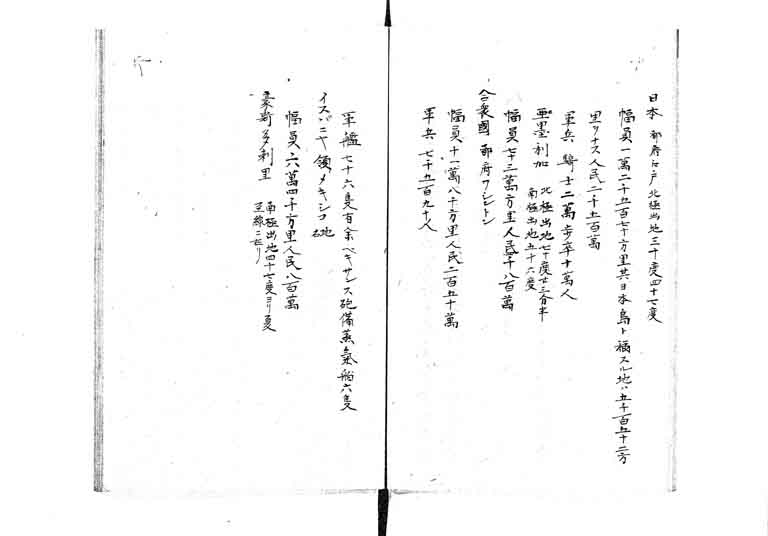 日本 都府江戸 北極出地三十度四十七度
幅員一萬二千五百七十方里其日本島ト稱スル地ハ五千百五十二方
里リナス人民二千五百萬
軍兵 騎士二萬歩卒十萬人
亜墨利加 北極出地七十度廿三分半
南極出地五十六度
幅員七十三萬方里人民千八百萬
合衆國 都府ワシントン
幅員十一萬八千方里人民二百五十萬
軍兵 七千五百九十人
軍艦七十六隻有余ペキサンス砲備蒸氣船六隻
イスパニヤ領メキシコ地
幅員六萬四千方里人民八百萬
豪斯多利里 南極出地四十七度ヨリ夏
至線ニ至リ